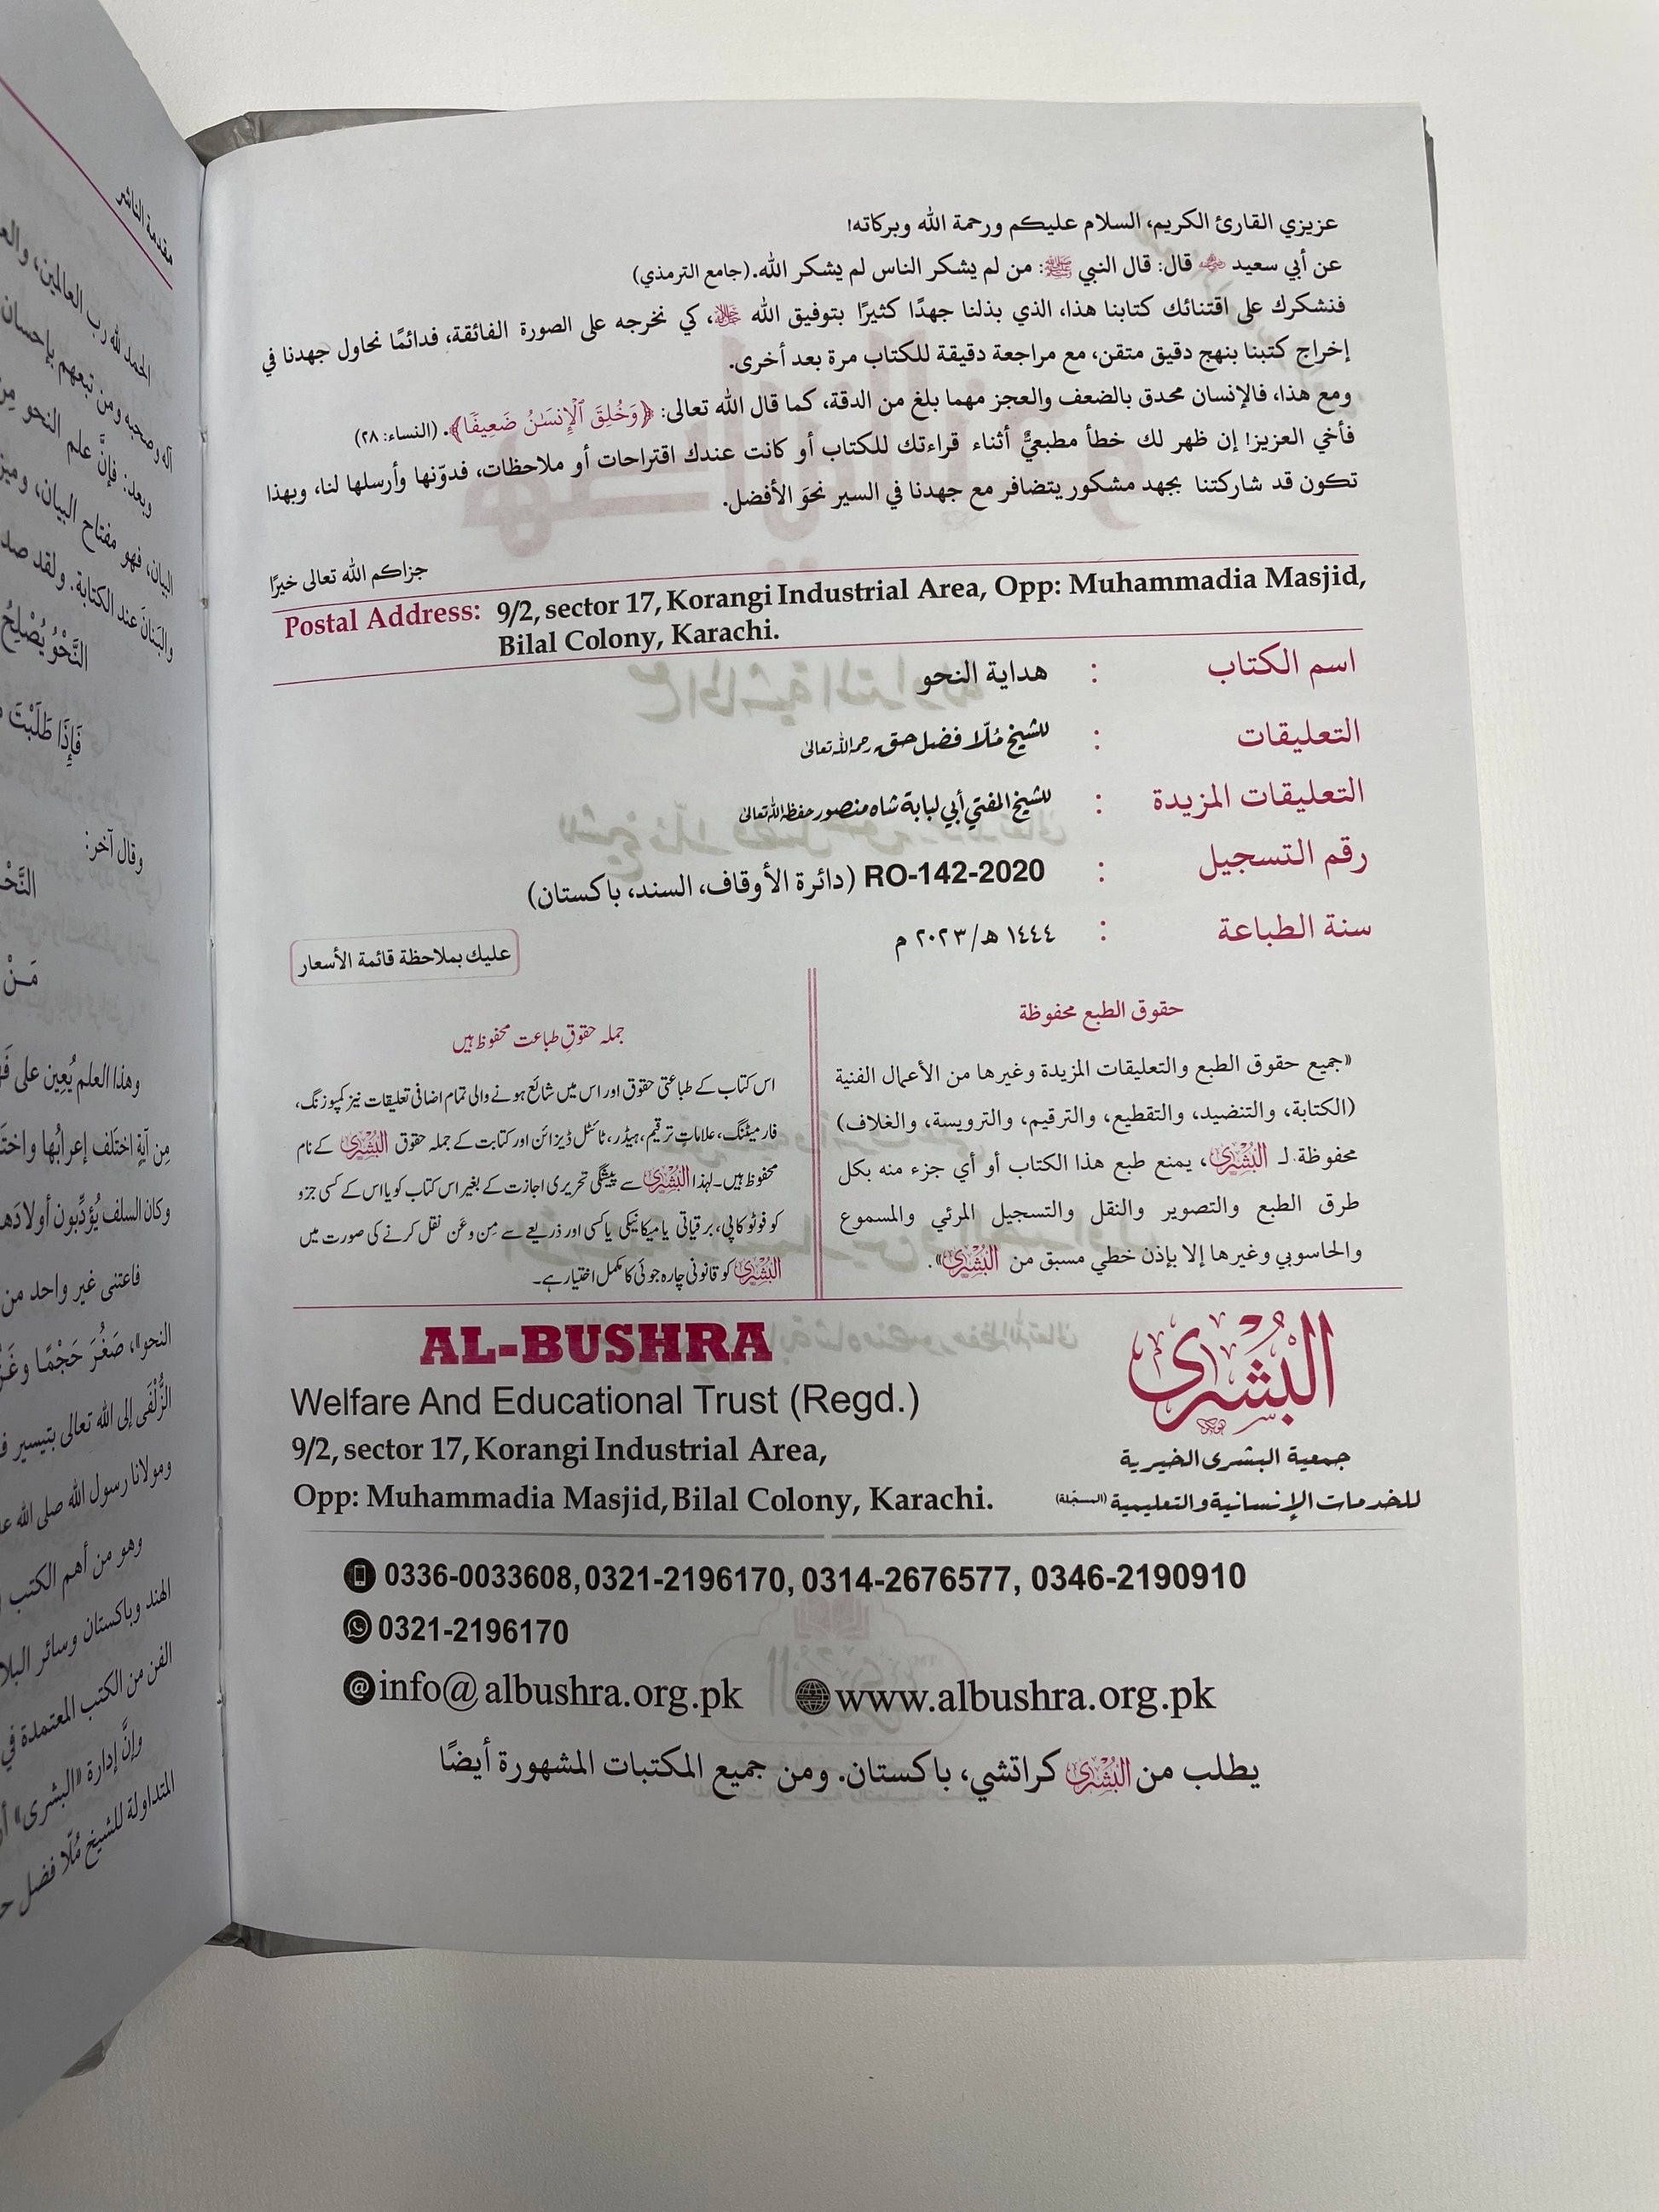 عزيزي القارئ الكريم، السلام عليكم ورحمة الله وبركاته!
عن أبي سعيد رضي الله عنه قال: قال النبي ﷺ: من لم يشكر الناس لم يشكر الله. (جامع الترمذي)
فنشكرك على اقتنائك كتابنا هذا، الذي بذلنا جهدًا كثيرًا بتوفيق الله ﷻ، كي نخرجه على الصورة الفائقة، فدائمًا نحاول جهدنا في
إخراج كتبنا بنهج دقيق متقن، مع مراجعة دقيقة للكتاب مرة بعد أخرى.
ومع هذا، فالإنسان محدق بالضعف والعجز مهما بلغ من الدقة، كما قال الله تعالى: ﴿وَخُلِقَ ٱلْإِنسَٰنُ ضَعِيفًا﴾. (النساء: ٢٨)
فأخي العزيز! إن ظهر لك خطأ مطبعيٌّ أثناء قراءتك للكتاب أو كانت عندك اقتراحات أو ملاحظات، فدوّنها وأرسلها لنا، وبهذا
تكون قد شاركتنا بجهد مشكور يتضافر مع جهدنا في السير نحوَ الأفضل.
جزاكم الله تعالى خيرًا
Postal Address: 9/2, sector 17, Korangi Industrial Area, Opp: Muhammadia Masjid,
Bilal Colony, Karachi.
اسم الكتاب : هداية النحو
التعليقات : للشيخ مُلّا فضل حق رحمه الله تعالى
التعليقات المزيدة : للشيخ المفتي أبي لبابة شاه منصور حفظه الله تعالى
رقم التسجيل : RO-142-2020 (دائرة الأوقاف، السند، باكستان)
سنة الطباعة : ١٤٤٤ هـ/٢٠٢٣ م
عليك بملاحظة قائمة الأسعار
حقوق الطبع محفوظة
«جميع حقوق الطبع والتعليقات المزيدة وغيرها من الأعمال الفنية
(الكتابة، والتنضيد، والتقطيع، والترقيم، والترويسة، والغلاف)
محفوظة لـ البُشرى، يمنع طبع هذا الكتاب أو أي جزء منه بكل
طرق الطبع والتصوير والنقل والتسجيل المرئي والمسموع
والحاسوبي وغيرها إلا بإذن خطي مسبق من البُشرى».
جملہ حقوقِ طباعت محفوظ ہیں
اس کتاب کے طباعتی حقوق اور اس میں شائع ہونے والی تمام اضافی تعلیقات نیز کمپوزنگ،
فارمیٹنگ، علاماتِ ترقیم، ہیڈر، ٹائٹل ڈیزائن اور کتابت کے جملہ حقوق البُشرى کے نام
محفوظ ہیں۔ لہٰذا البُشرى سے پیشگی تحریری اجازت کے بغیر اس کتاب کو یا اس کے کسی جزو
کو فوٹو کاپی، برقیاتی یا میکانیکی یا کسی اور ذریعے سے مِن وعَن نقل کرنے کی صورت میں
البُشرى کو قانونی چارہ جوئی کا مکمل اختیار ہے۔
AL-BUSHRA
Welfare And Educational Trust (Regd.)
9/2, sector 17, Korangi Industrial Area,
Opp: Muhammadia Masjid, Bilal Colony, Karachi.
البُشرى
جمعية البشرى الخيرية
للخدمات الإنسانية والتعليمية (المسجّلة)
0336-0033608, 0321-2196170, 0314-2676577, 0346-2190910
0321-2196170
info@albushra.org.pk www.albushra.org.pk
يطلب من البُشرى كراتشي، باكستان. ومن جميع المكتبات المشهورة أيضًا
مقدمة الناشر
الحمد لله رب العالمين،
آله وصحبه ومن تبعهم بإحسان
وبعد: فإنَّ علم النحو
البيان، فهو مفتاح البيان،
والبَنانَ عند الكتابة. ولقد
النَّحْوُ يُصْلِحُ
فَإِذَا طَلَبْتَ
وقال آخر:
مَـنْ
وهذا العلم يُعِين على
مِن آيةٍ اختَلف إعرابُها
وكان السلف يُؤدِّبون أولادَهم
فاعتنى غير واحد من
النحو»، صَغُرَ حَجْمًا
الزُّلْفَى إلى الله تعالى بتيسير
ومولانا رسول الله صلى الله
وهو من أهم الكتب
الهند وباكستان وسائر البلاد
الفن من الكتب المعتمدة في
وإنَّ إدارة «البشرى»
المتداولة للشيخ مُلّا فضل